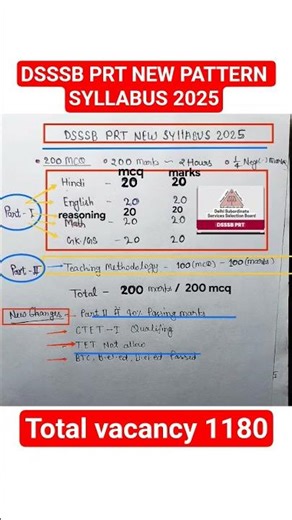 DSSSB PRT NEW PATTERN
SYLLABUS 2025
DSSSB PRT NEW SYLLABUS 2025
• 200 MCQ • 200 marks - 2 Hours • 1/4 Neg(-) Marks
mcq marks
Hindi - 20 20
English - 20 20
reasoning 20 20
Math - 20 20
GK/GS - 20 20
Part-I
Delhi Subordinate
Services Selection Board
DSSSB PRT
Part-II
Teaching Methodology - 100 (MCQ) - 100 (marks)
Total - 200 marks / 200 mcq
New Changes - Part II में 40% Passing marks
→ CTET-I Qualifying
→ TET Not allow
→ BTC, B.el.ed, D.el.ed Passed
Total vacancy 1180